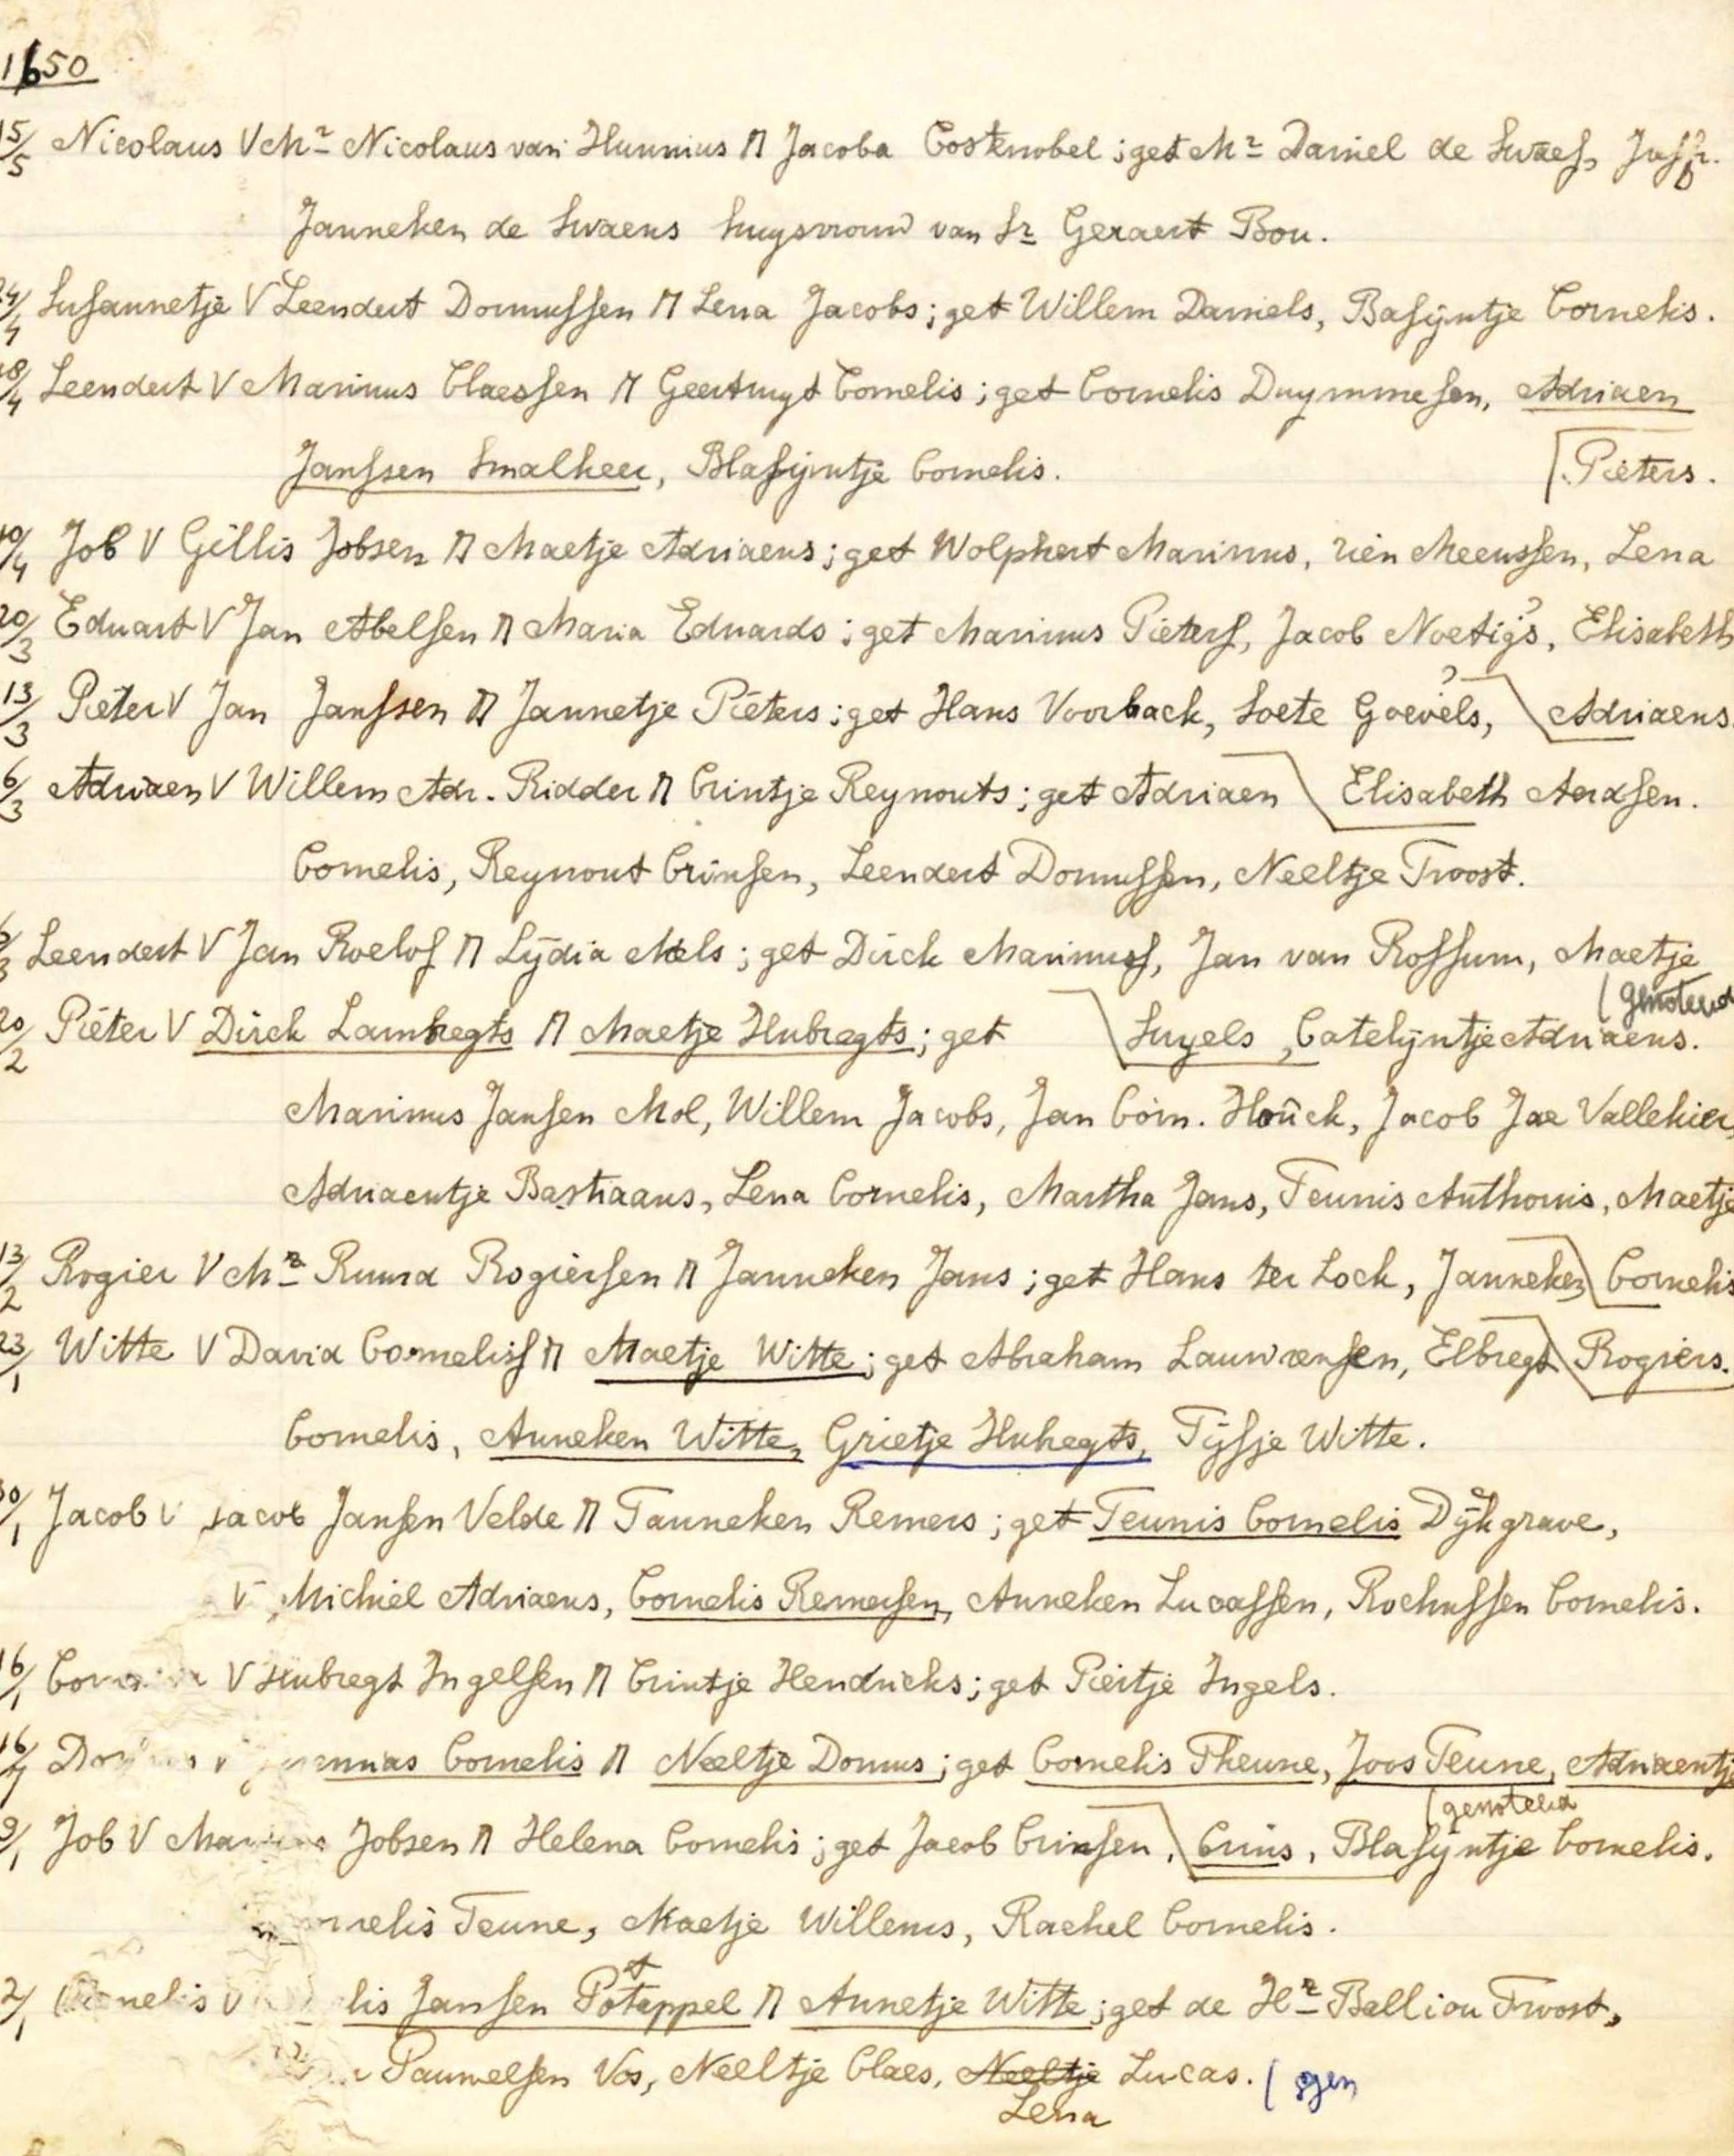 1650
15/5 Nicolaus V Mr Nicolaus van Hunnius M Jacoba Oostknobel; get Mr Daniel de Swaef, Juffr.
Janneken de Swaens huysvrouw van Sr Geraert Bou.
24/4 Susannetje V Leendert Domussen M Lena Jacobs; get Willem Daniels, Basijntje Cornelis.
18/4 Leendert V Marinus Claessen M Geertruyt Cornelis; get Cornelis Duymmesen, Adriaen
Janssen Smalheer, Blasijntje Cornelis. [Pieters.
10/4 Job V Gillis Jobsen M Maetje Adriaens; get Wolphert Marinus, Rien Meeussen, Lena
20/3 Eduart V Jan Abelsen M Maria Eduards; get Marinus Pieters, Jacob Noetigs?, Elisabeth
13/3 Pieter V Jan Janssen M Jannetje Pieters; get Hans Voorback, Soete Goevels?, Adriaens.
6/3 Adriaen V Willem Adr. Ridder M Crintje Reynouts; get Adriaen Elisabeth Aerdsen.
Cornelis, Reynout Crinsen, Leendert Domussen, Neeltje Troost.
6/3 Leendert V Jan Roelof M Lydia Mels; get Dirck Marinuss, Jan van Rossum, Maetje
(genoteerd
20/2 Pieter V Dirck Lambregts M Maetje Hubregts; get Suyels, Catelijntje Adriaens.
Marinus Jansen Mol, Willem Jacobs, Jan Corn. Houck, Jacob Jae Vallekier,
Adriaentje Bastiaans, Lena Cornelis, Martha Jans, Teunis Anthonis, Maetje
13/2 Rogier V Mr Ruurd Rogiersen M Janneken Jans; get Hans ter Lock, Janneken Cornelis
23/1 Witte V David Corneliss M Maetje Witte; get Abraham Lauwrensen, Elbregt Rogiers.
Cornelis, Anneken Witte, Grietje Huhegts, Tijsje Witte.
30/1 Jacob V Jacob Jansen Velde M Tanneken Remers; get Teunis Cornelis Dijkgrave,
V Michiel Adriaens, Cornelis Remersen, Anneken Lucassen, Rochussen Cornelis.
16/1 V Hubregt Ingelsen M Crintje Hendricks; get Pieitje Ingels.
16/1 Cornelis M Neeltje Domus; get Cornelis Theune, Joos Teune, Adriaentje
(genoteerd
9/1 Job V Jobsen M Helena Cornelis; get Jacob Crinsen, Crins, Blasijntje Cornelis.
Teune, Maetje Willems, Rachel Cornelis.
2/1 Cornelis V lis Jansen Potappel M Annetje Witte; get de Hr Balliou Troost,
Pauwelsen Vos, Neeltje Claes, Neeltje Lucas. (gen
Lena